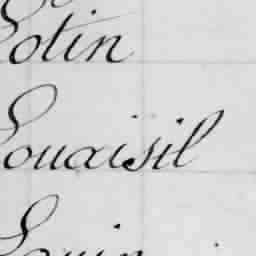 Lotin
Louaisil